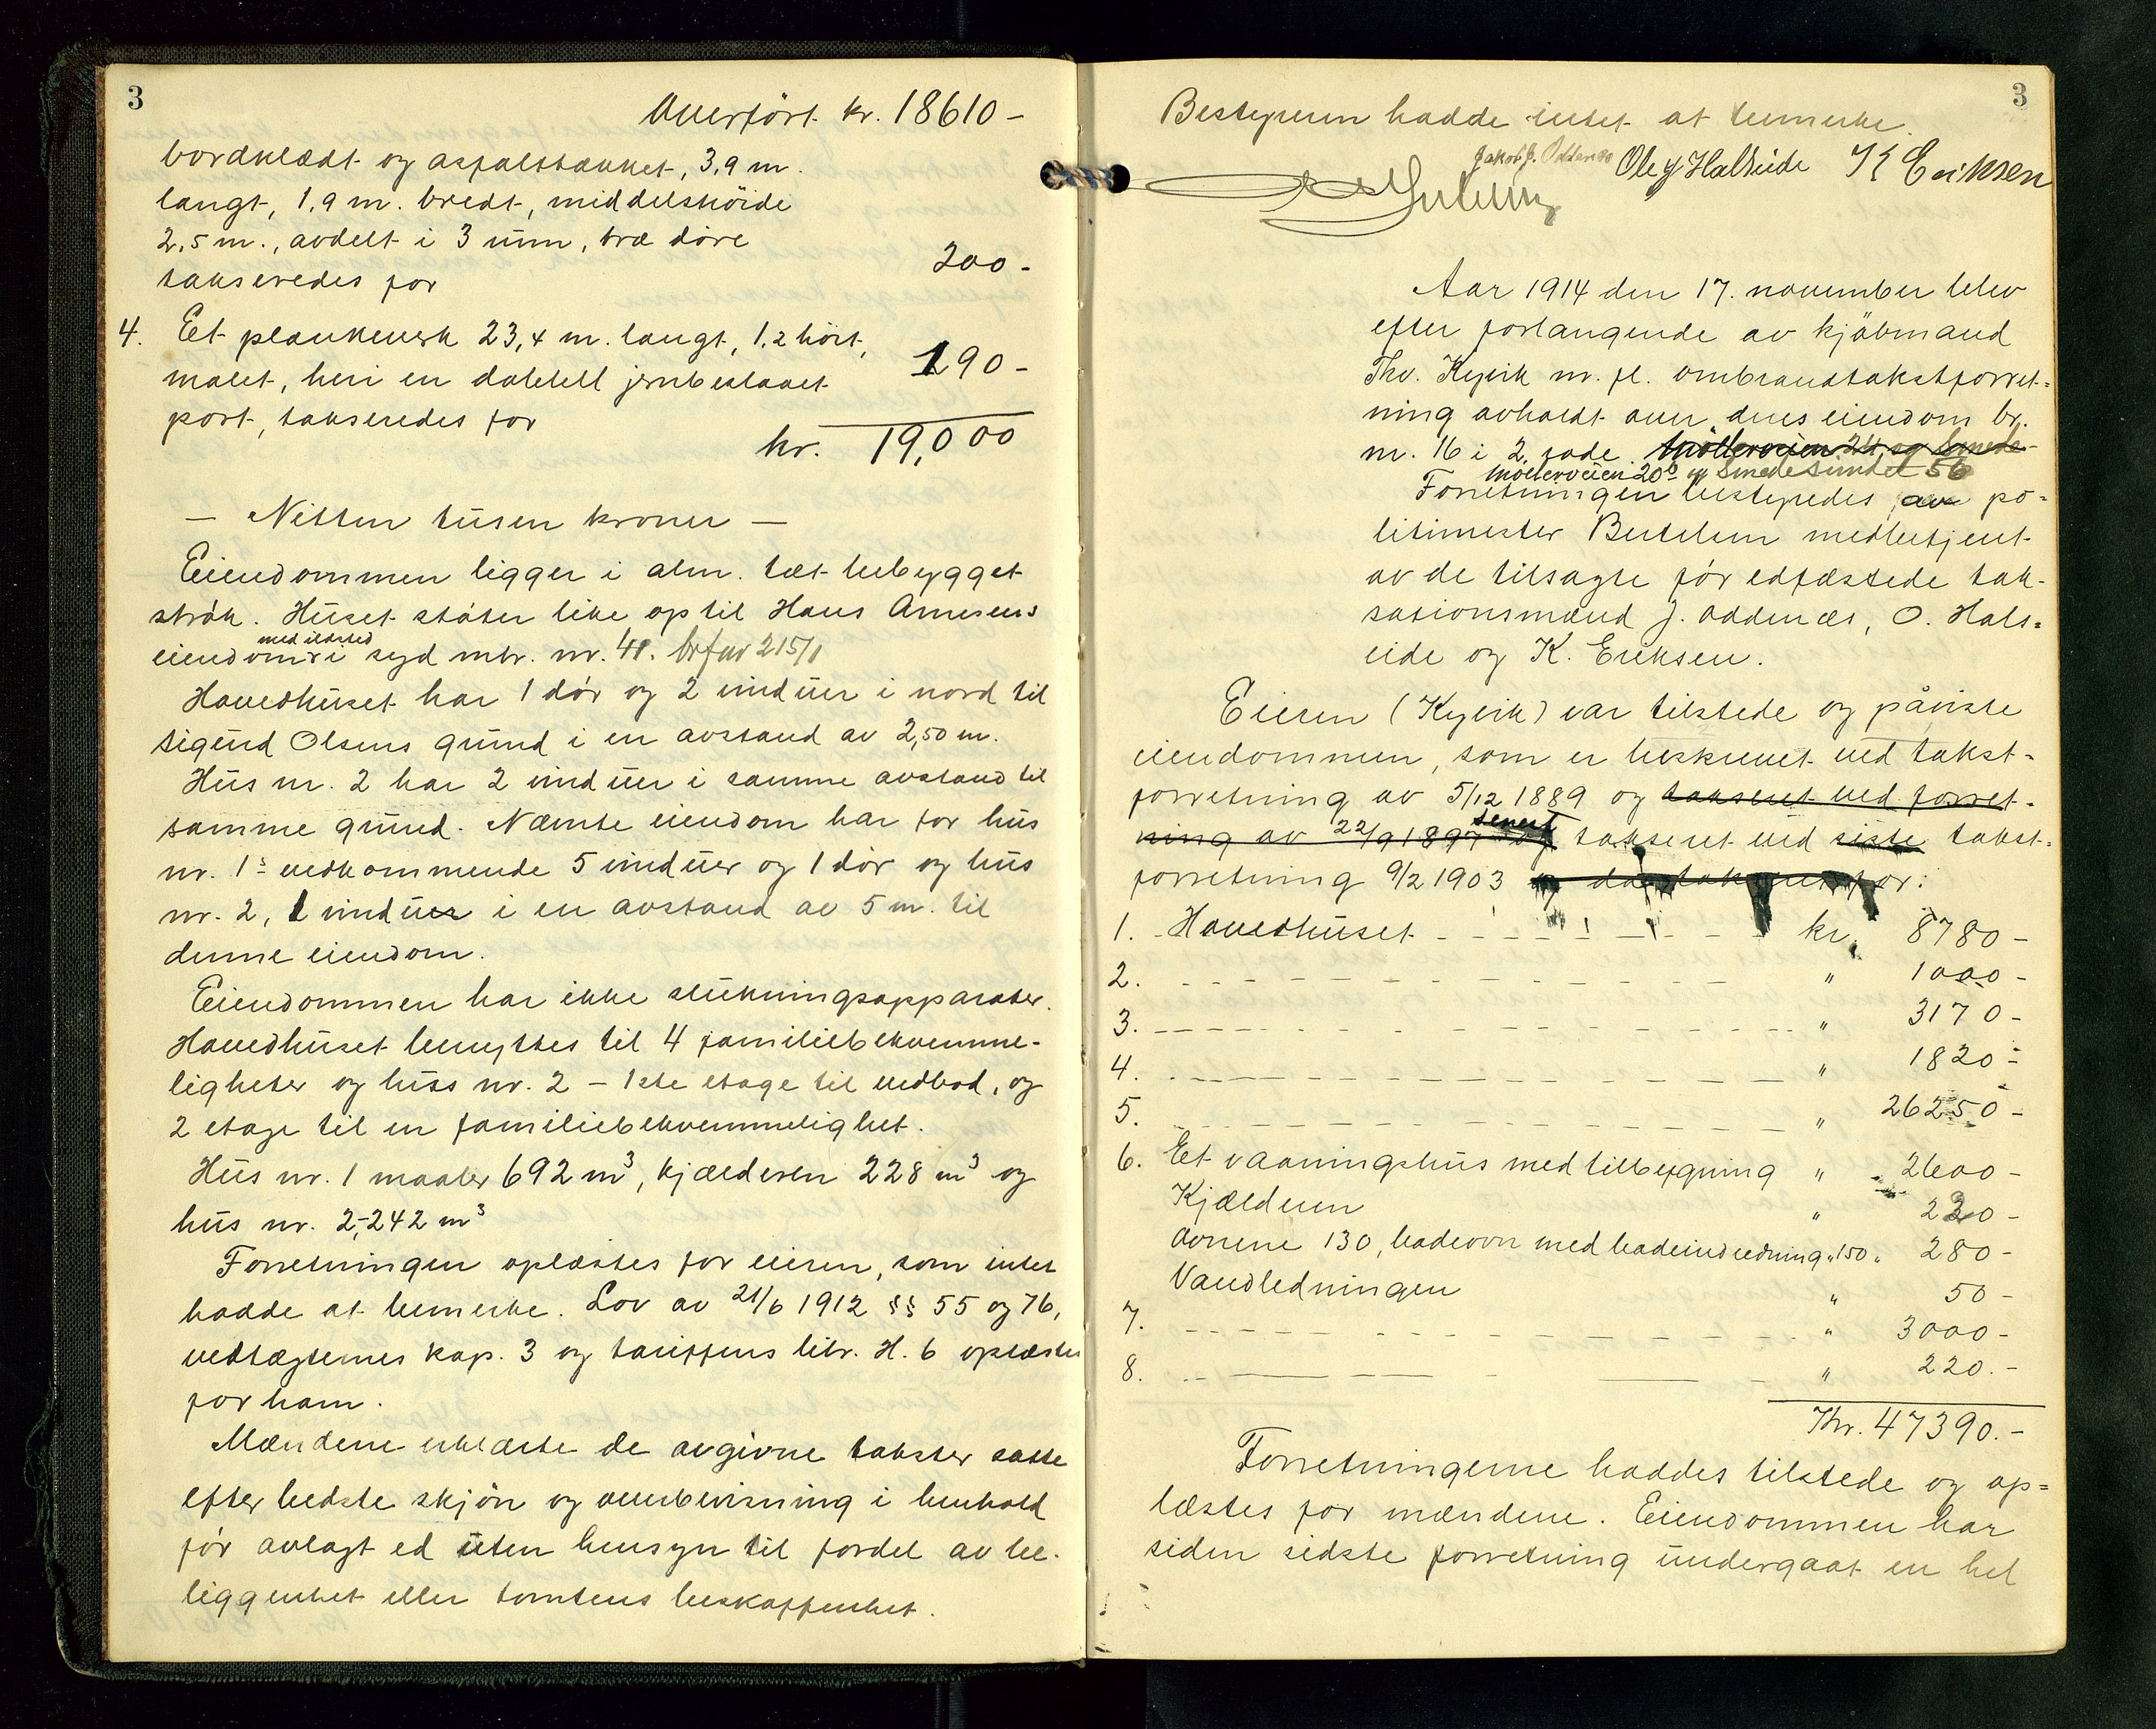 3
Overført kr. 18610 -
bordklædt og asfalttækket, 3,9 m.
langt, 1,9 m. bredt, middelshöide
2,5 m., avdelt i 3 rum, træ döre
takseredes for 200 -
4. Et plankeverk 23,4 m. langt, 1,2 höit,
malet, heri en dobbelt jernbeslaaet
port, takseredes for 190 -
kr. 19,000
— Nitten tusen kroner —
Eiendommen ligger i alm. tæt bebygget
strök. Huset stöter like op til Hans Arnesens
med ildsted
eiendom i syd mbr. nr. 41. brfor 215/1
Hovedhuset har 1 dör og 2 vinduer i nord til
Sigurd Olsens grund i en avstand av 2,50 m.
Hus nr. 2 har 2 vinduer i samme avstand til
samme grund. Nævnte eiendom har for hus
nr. 1s vedkommende 5 vinduer og 1 dör og hus
nr. 2, 1 vindu i en avstand av 5 m. til
denne eiendom.
Eiendommen har ikke slukningsapparater.
Hovedhuset benyttes til 4 familiebekvemme-
ligheter og huss nr. 2 - 1ste etage til vedbod, og
2 etage til en familiebekvemmelighet.
Hus nr. 1 maaler 692 m³, kjælderen 228 m³ og
hus nr. 2,- 242 m³
Forretningen oplæstes for eieren, som intet
hadde at bemerke. Lov av 21/6 1912 §§ 55 og 76,
vedtægternes kap. 3 og tariffens litr. H. 6 oplæstes
for ham.
Mændene erklærte de avgivne takster satte
efter bedste skjön og overbevisning i henhold
för avlagt ed uten hensyn til fordel av be-
liggenhet eller tomtens beskaffenhet.
3
Bestyreren hadde intet at bemerke.
Jakob J. Oddenæs Ole J Halseide K Eriksen
Aar 1914 den 17. november blev
efter forlangende av kjöbmand
Thv. Kyvik m. fl. ombrandtakstforret-
ning avholdt over deres eiendom br.
nr. 16 i 2. rode. Mölleveien 24 og Smede-
Mölleveien 20 og Smedesundet 56
Forretningen bestyredes av po-
litimester Bertelsen medbetjent
av de tilsagte för edfæstede tak-
sationsmænd J. Oddenæs, O. Hals-
eide og K. Eriksen.
Eieren (Kyvik) var tilstede og påviste
eiendommen, som er beskrevet ved takst-
forretning av 5/12 1889 og takseret ved forret-
ning av 22/9 1897 og senest takseret ved siste takst-
forretning 9/2 1903 og da takseret for:
1. Hovedhuset - - - - - - kr. 8780 -
2. - - - - - - - - - - " 1000 -
3. - - - - - - - - - - " 3170 -
4. - - - - - - - - - - " 1820 -
5. - - - - - - - - - - " 26250 -
6. Et vaaningshus med tilbygning " 2600 -
Kjælderen " 220 -
Ovnene 130, badeovn med badeindredning " 150 " 280 -
Vandledningen " 50 -
7. - - - - - - - - - - " 3000 -
8. - - - - - - - - - - " 220. -
Kr. 47390. -
Forretningerne haddes tilstede og op-
læstes for mændene. Eiendommen har
siden sidste forretning undergaat en hel